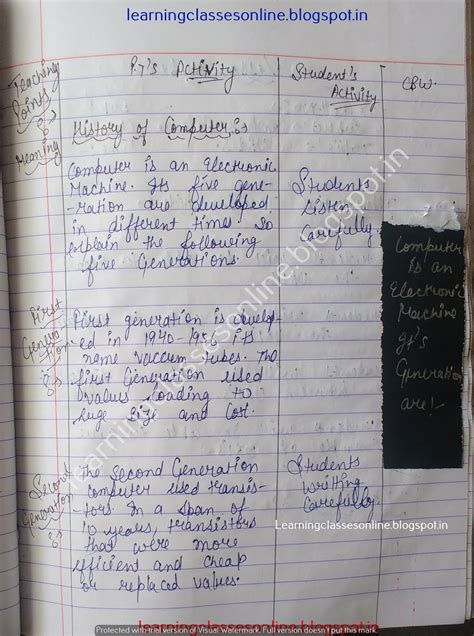 learningclassesonline.blogspot.in
Teaching Points:
P.T's Activity
Student's Activity
CBW.
History of Computer:
Meaning
Computer is an Electronic
Machine. Its five gene-
-ration are developed
in different times. So
explain the following
five Generations.
Students
Listen
Carefully
Computer
is an
Electronic
Machine
It's
Generation
are:-
First
Generation
First generation is develop-
ed in 1940-1956 its
name vaccum tubes. The
first Generation used
values loading to
huge size and cost.
Second
Generation
The Second Generation
computer used transis-
tors. In a span of
10 years, transistors
that were more
efficient and cheap
or replaced values.
Students
Writting
Carefully
Learningclassesonline.blogspot.in
learningclassesonline.blogspot.in
Protected with trial version of Visual Watermark. Full version doesn't put this mark.
learningclassesonline.blogspot.in